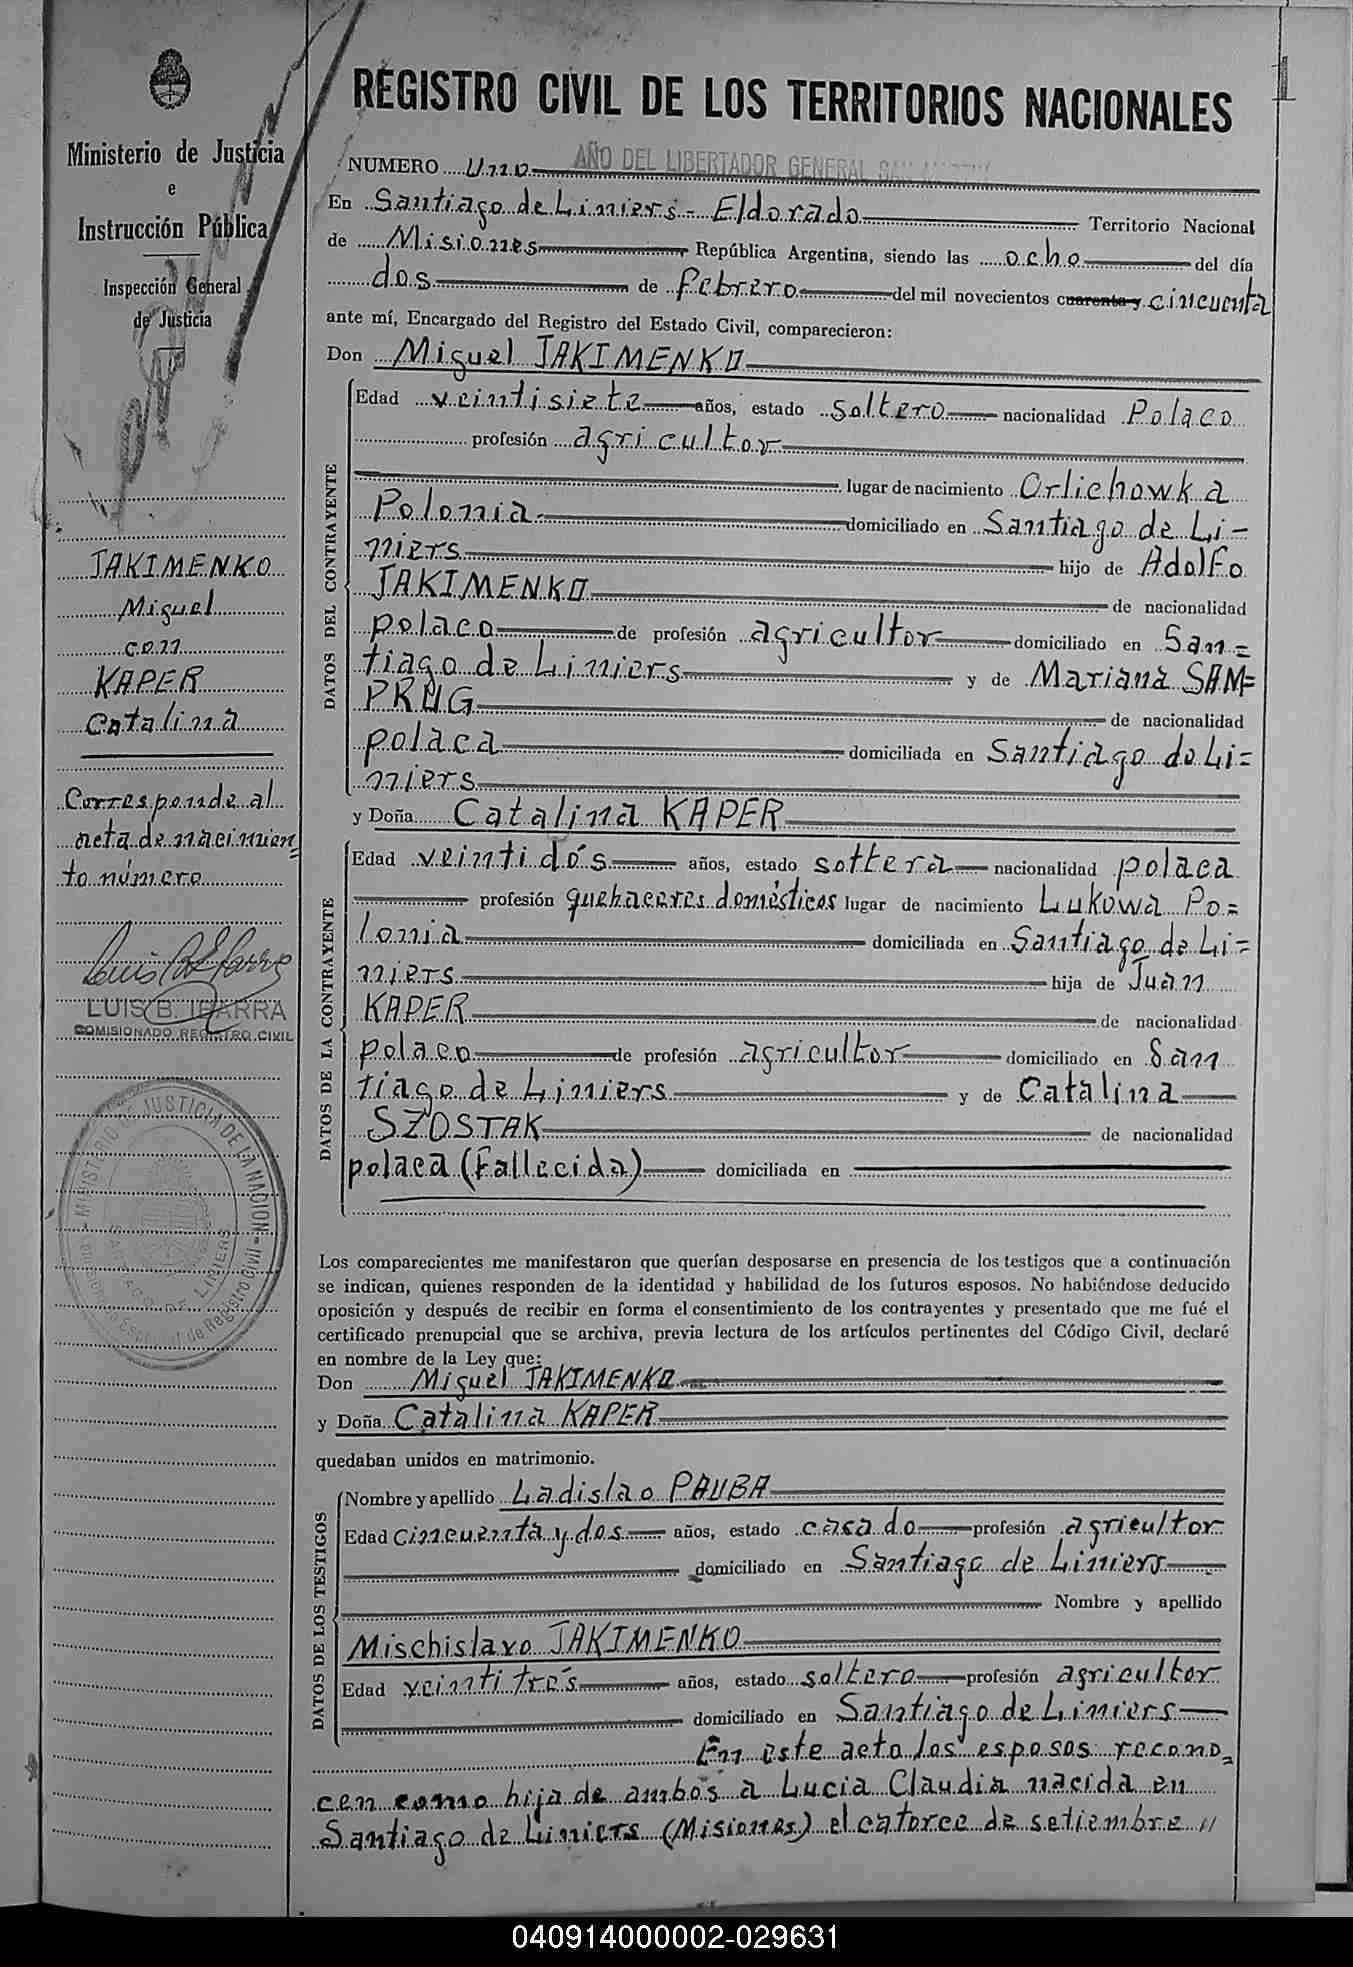 1
Ministerio de Justicia
e
Instrucción Pública
Inspección General
de Justicia
JAKIMENKO
Miguel
con
KAPER
Catalina
Corresponde al
acta de nacimien=
to número
LUIS B. IBARRA
COMISIONADO REGISTRO CIVIL
MINISTERIO DE JUSTICIA DE LA NACION
SANTIAGO DE LINIERS
REGISTRO CIVIL DE LOS TERRITORIOS NACIONALES
AÑO DEL LIBERTADOR GENERAL SAN MARTIN
NUMERO Uno
En Santiago de Liniers - Eldorado Territorio Nacional
de Misiones República Argentina, siendo las ocho del día
dos de Febrero del mil novecientos cuarenta y cincuenta
ante mí, Encargado del Registro del Estado Civil, comparecieron:
Don Miguel JAKIMENKO
DATOS DEL CONTRAYENTE
Edad veintisiete años, estado soltero nacionalidad Polaco
profesión agricultor
lugar de nacimiento Orlichowka
Polonia domiciliado en Santiago de Li=
niers hijo de Adolfo
JAKIMENKO de nacionalidad
polaco de profesión agricultor domiciliado en San=
tiago de Liniers y de Mariana SAM=
PRUG de nacionalidad
polaca domiciliada en Santiago de Li=
niers
y Doña Catalina KAPER
DATOS DE LA CONTRAYENTE
Edad veintidós años, estado soltera nacionalidad polaca
profesión quehaceres domésticos lugar de nacimiento Lukowa Po=
lonia domiciliada en Santiago de Li=
niers hija de Juan
KAPER de nacionalidad
polaco de profesión agricultor domiciliado en San
tiago de Liniers y de Catalina
SZOSTAK de nacionalidad
polaca (Fallecida) domiciliada en
Los comparecientes me manifestaron que querían desposarse en presencia de los testigos que a continuación
se indican, quienes responden de la identidad y habilidad de los futuros esposos. No habiéndose deducido
oposición y después de recibir en forma el consentimiento de los contrayentes y presentado que me fué el
certificado prenupcial que se archiva, previa lectura de los artículos pertinentes del Código Civil, declaré
en nombre de la Ley que:
Don Miguel JAKIMENKO
y Doña Catalina KAPER
quedaban unidos en matrimonio.
DATOS DE LOS TESTIGOS
Nombre y apellido Ladislao PAUBA
Edad cincuenta y dos años, estado casado profesión agricultor
domiciliado en Santiago de Liniers
Nombre y apellido
Mischislavo JAKIMENKO
Edad veintitrés años, estado soltero profesión agricultor
domiciliado en Santiago de Liniers
En este acto los esposos recono=
cen como hija de ambos a Lucia Claudia nacida en
Santiago de Liniers (Misiones) el catorce de setiembre "
040914000002-029631